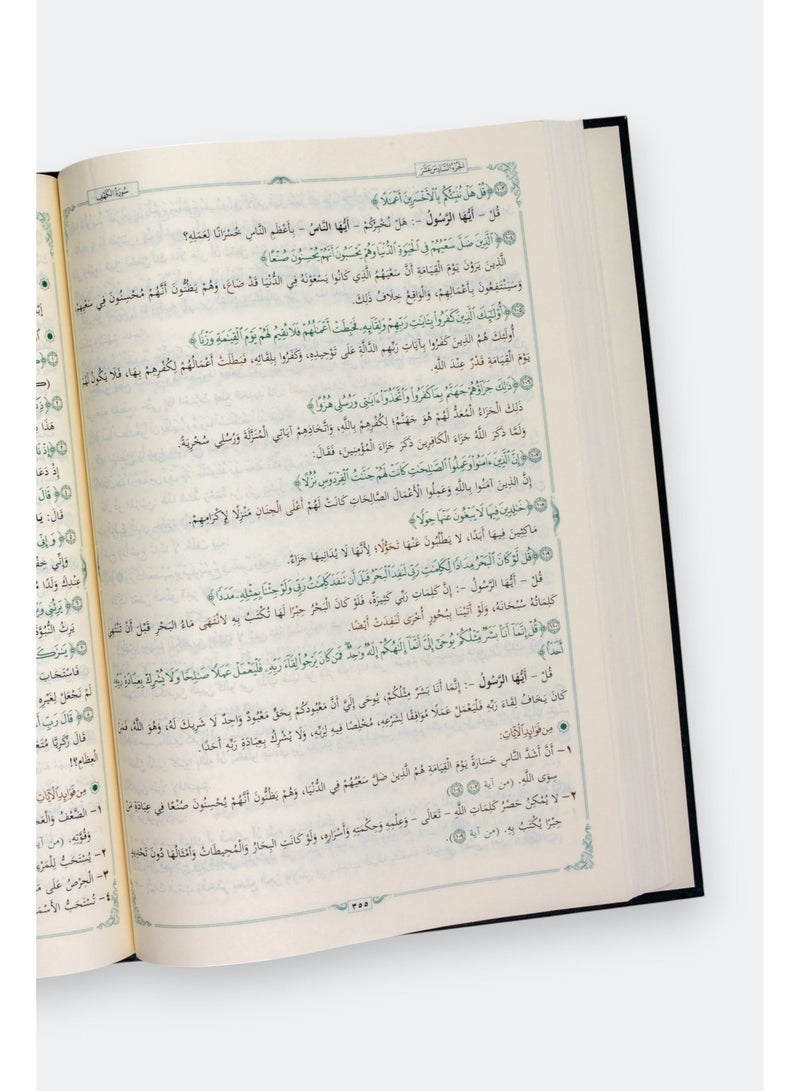 الجزء السادس عشر
سورة الكهف
﴿قُلْ هَلْ نُنَبِّئُكُم بِالْأَخْسَرِينَ أَعْمَالًا﴾
قُلْ - أَيُّهَا الرَّسُولُ -: هَلْ نُخْبِرُكُمْ - أَيُّهَا النَّاسُ - بِأَعْظَمِ النَّاسِ خُسْرَانًا لِعَمَلِهِ؟
١٠٤ ﴿الَّذِينَ ضَلَّ سَعْيُهُمْ فِي الْحَيَوٰةِ الدُّنْيَا وَهُمْ يَحْسَبُونَ أَنَّهُمْ يُحْسِنُونَ صُنْعًا﴾
الَّذِينَ يَرَوْنَ يَوْمَ الْقِيَامَةِ أَنَّ سَعْيَهُمُ الَّذِي كَانُوا يَسْعَوْنَهُ فِي الدُّنْيَا قَدْ ضَاعَ، وَهُمْ يَظُنُّونَ أَنَّهُمْ مُحْسِنُونَ فِي سَعْيِهِمْ
وَسَيَنْتَفِعُونَ بِأَعْمَالِهِمْ، وَالْوَاقِعُ خِلَافُ ذَلِكَ.
١٠٥ ﴿أُولَٰئِكَ الَّذِينَ كَفَرُوا بِآيَاتِ رَبِّهِمْ وَلِقَائِهِ فَحَبِطَتْ أَعْمَالُهُمْ فَلَا نُقِيمُ لَهُمْ يَوْمَ الْقِيَامَةِ وَزْنًا﴾
أُولَئِكَ هُمُ الَّذِينَ كَفَرُوا بِآيَاتِ رَبِّهِم الدَّالَّةِ عَلَى تَوْحِيدِهِ، وَكَفَرُوا بِلِقَائِهِ، فَبَطَلَتْ أَعْمَالُهُمْ لِكُفْرِهِمْ بِهَا، فَلَا يَكُونُ لَهُمْ
يَوْمَ الْقِيَامَةِ قَدْرٌ عِنْدَ اللَّهِ.
١٠٦ ﴿ذَٰلِكَ جَزَاؤُهُمْ جَهَنَّمُ بِمَا كَفَرُوا وَاتَّخَذُوا آيَاتِي وَرُسُلِي هُزُوًا﴾
ذَلِكَ الْجَزَاءُ الْمُعَدُّ لَهُمْ هُوَ جَهَنَّمُ؛ لِكُفْرِهِمْ بِاللَّهِ، وَاتِّخَاذِهِمْ آيَاتِي الْمُنَزَّلَةَ وَرُسُلِي سُخْرِيَةً.
وَلَمَّا ذَكَرَ اللَّهُ جَزَاءَ الْكَافِرِينَ ذَكَرَ جَزَاءَ الْمُؤْمِنِينَ، فَقَالَ:
١٠٧ ﴿إِنَّ الَّذِينَ آمَنُوا وَعَمِلُوا الصَّالِحَاتِ كَانَتْ لَهُمْ جَنَّاتُ الْفِرْدَوْسِ نُزُلًا﴾
إِنَّ الَّذِينَ آمَنُوا بِاللَّهِ وَعَمِلُوا الْأَعْمَالَ الصَّالِحَاتِ كَانَتْ لَهُمْ أَعْلَى الْجِنَانِ مَنْزِلًا لِإِكْرَامِهِمْ.
١٠٨ ﴿خَالِدِينَ فِيهَا لَا يَبْغُونَ عَنْهَا حِوَلًا﴾
مَاكِثِينَ فِيهَا أَبَدًا، لَا يَطْلُبُونَ عَنْهَا تَحَوُّلًا؛ لِأَنَّهَا لَا يُدَانِيهَا جَزَاءٌ.
١٠٩ ﴿قُل لَّوْ كَانَ الْبَحْرُ مِدَادًا لِّكَلِمَاتِ رَبِّي لَنَفِدَ الْبَحْرُ قَبْلَ أَن تَنفَدَ كَلِمَاتُ رَبِّي وَلَوْ جِئْنَا بِمِثْلِهِ مَدَدًا﴾
قُلْ - أَيُّهَا الرَّسُولُ -: إِنَّ كَلِمَاتِ رَبِّي كَثِيرَةٌ، فَلَوْ كَانَ الْبَحْرُ حِبْرًا لَهَا تُكْتَبُ بِهِ لَانْتَهَى مَاءُ الْبَحْرِ قَبْلَ أَنْ تَنْتَهِيَ
كَلِمَاتُهُ سُبْحَانَهُ، وَلَوْ أَتَيْنَا بِبُحُورٍ أُخْرَى لَنَفِدَتْ أَيْضًا.
١١٠ ﴿قُلْ إِنَّمَا أَنَا بَشَرٌ مِّثْلُكُمْ يُوحَىٰ إِلَيَّ أَنَّمَا إِلَٰهُكُمْ إِلَٰهٌ وَاحِدٌ فَمَن كَانَ يَرْجُو لِقَاءَ رَبِّهِ فَلْيَعْمَلْ عَمَلًا صَالِحًا وَلَا يُشْرِكْ بِعِبَادَةِ رَبِّهِ
أَحَدًا﴾
قُلْ - أَيُّهَا الرَّسُولُ -: إِنَّمَا أَنَا بَشَرٌ مِثْلُكُمْ، يُوحَى إِلَيَّ أَنَّ مَعْبُودَكُمْ بِحَقٍّ مَعْبُودٌ وَاحِدٌ لَا شَرِيكَ لَهُ، وَهُوَ اللَّهُ، فَمَنْ
كَانَ يَخَافُ لِقَاءَ رَبِّهِ فَلْيَعْمَلْ عَمَلًا مُوَافِقًا لِشَرْعِهِ، مُخْلِصًا فِيهِ لِرَبِّهِ، وَلَا يُشْرِكْ بِعِبَادَةِ رَبِّهِ أَحَدًا.
مِن فَوَائِدِ الْآيَاتِ:
١- أَنَّ أَشَدَّ النَّاسِ خَسَارَةً يَوْمَ الْقِيَامَةِ هُمُ الَّذِينَ ضَلَّ سَعْيُهُمْ فِي الدُّنْيَا، وَهُمْ يَظُنُّونَ أَنَّهُمْ يُحْسِنُونَ صُنْعًا فِي عِبَادَةِ مَنْ
سِوَى اللَّهِ. (من آية
٢- لَا يُمْكِنُ حَصْرُ كَلِمَاتِ اللَّهِ - تَعَالَى - وَعِلْمِهِ وَحِكْمَتِهِ وَأَسْرَارِهِ، وَلَوْ كَانَتِ الْبِحَارُ وَالْمُحِيطَاتُ وَأَمْثَالُهَا دُونَ تَحْدِيدٍ
حِبْرًا يُكْتَبُ بِهِ. (من آية ١٠٩).
٣٥٥
إِذْ دَعَا
﴿قَالَ
قَالَ: يَا
وَإِنِّي خِفْ
عِنْدِكَ وَلَدًا
يَرِثُ النُّبُوَّةَ
فَاسْتَجَابَ
لَمْ نَجْعَلْ لِغَيْرِهِ
﴿قَالَ رَبِّ
قَالَ زَكَرِيَّا
الْعِظَامِ؟!
مِن فَوَائِدِ الْآيَاتِ
١- الضَّعْفُ وَالْعَجْ
وَقُوَّتِهِ. (من آية
٢- يُسْتَحَبُّ لِلْمَرْ
٣- الْحِرْصُ عَلَى
٤- تُسْتَحَبُّ الْأَسْمَ